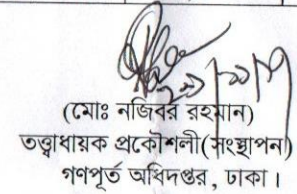 (মোঃ নজিবর রহমান)
তত্ত্বাধায়ক প্রকৌশলী(সংস্থাপন)
গণপূর্ত অধিদপ্তর, ঢাকা।